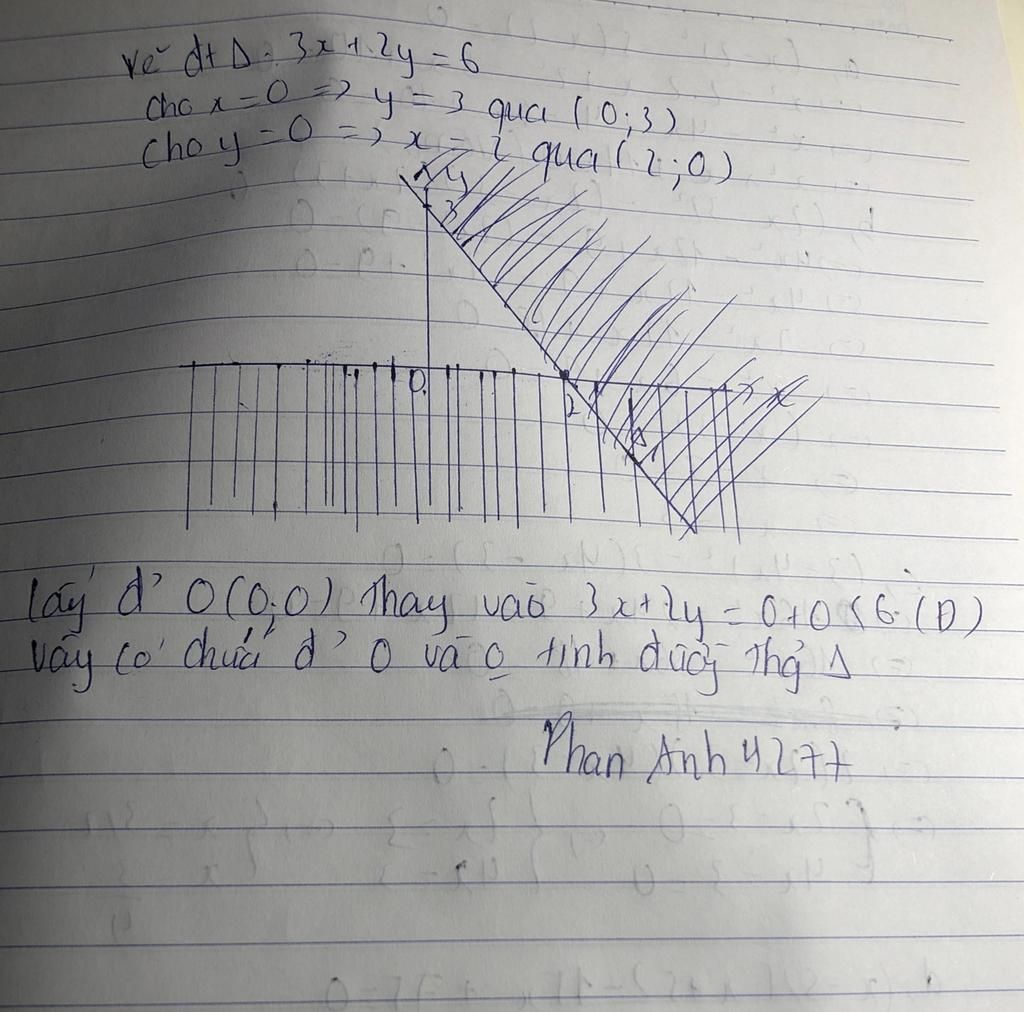 Vẽ đt Δ: 3x+2y=6
cho x=0 => y=3 qua (0;3)
cho y=0 => x=2 qua (2;0)
y
3
0
2
x
Δ
lấy đ' O(0;0) thay vào 3x+2y=0+0<6 (Đ)
vậy có chứa đ' O và o tính đường thg Δ
Phan Anh 4277